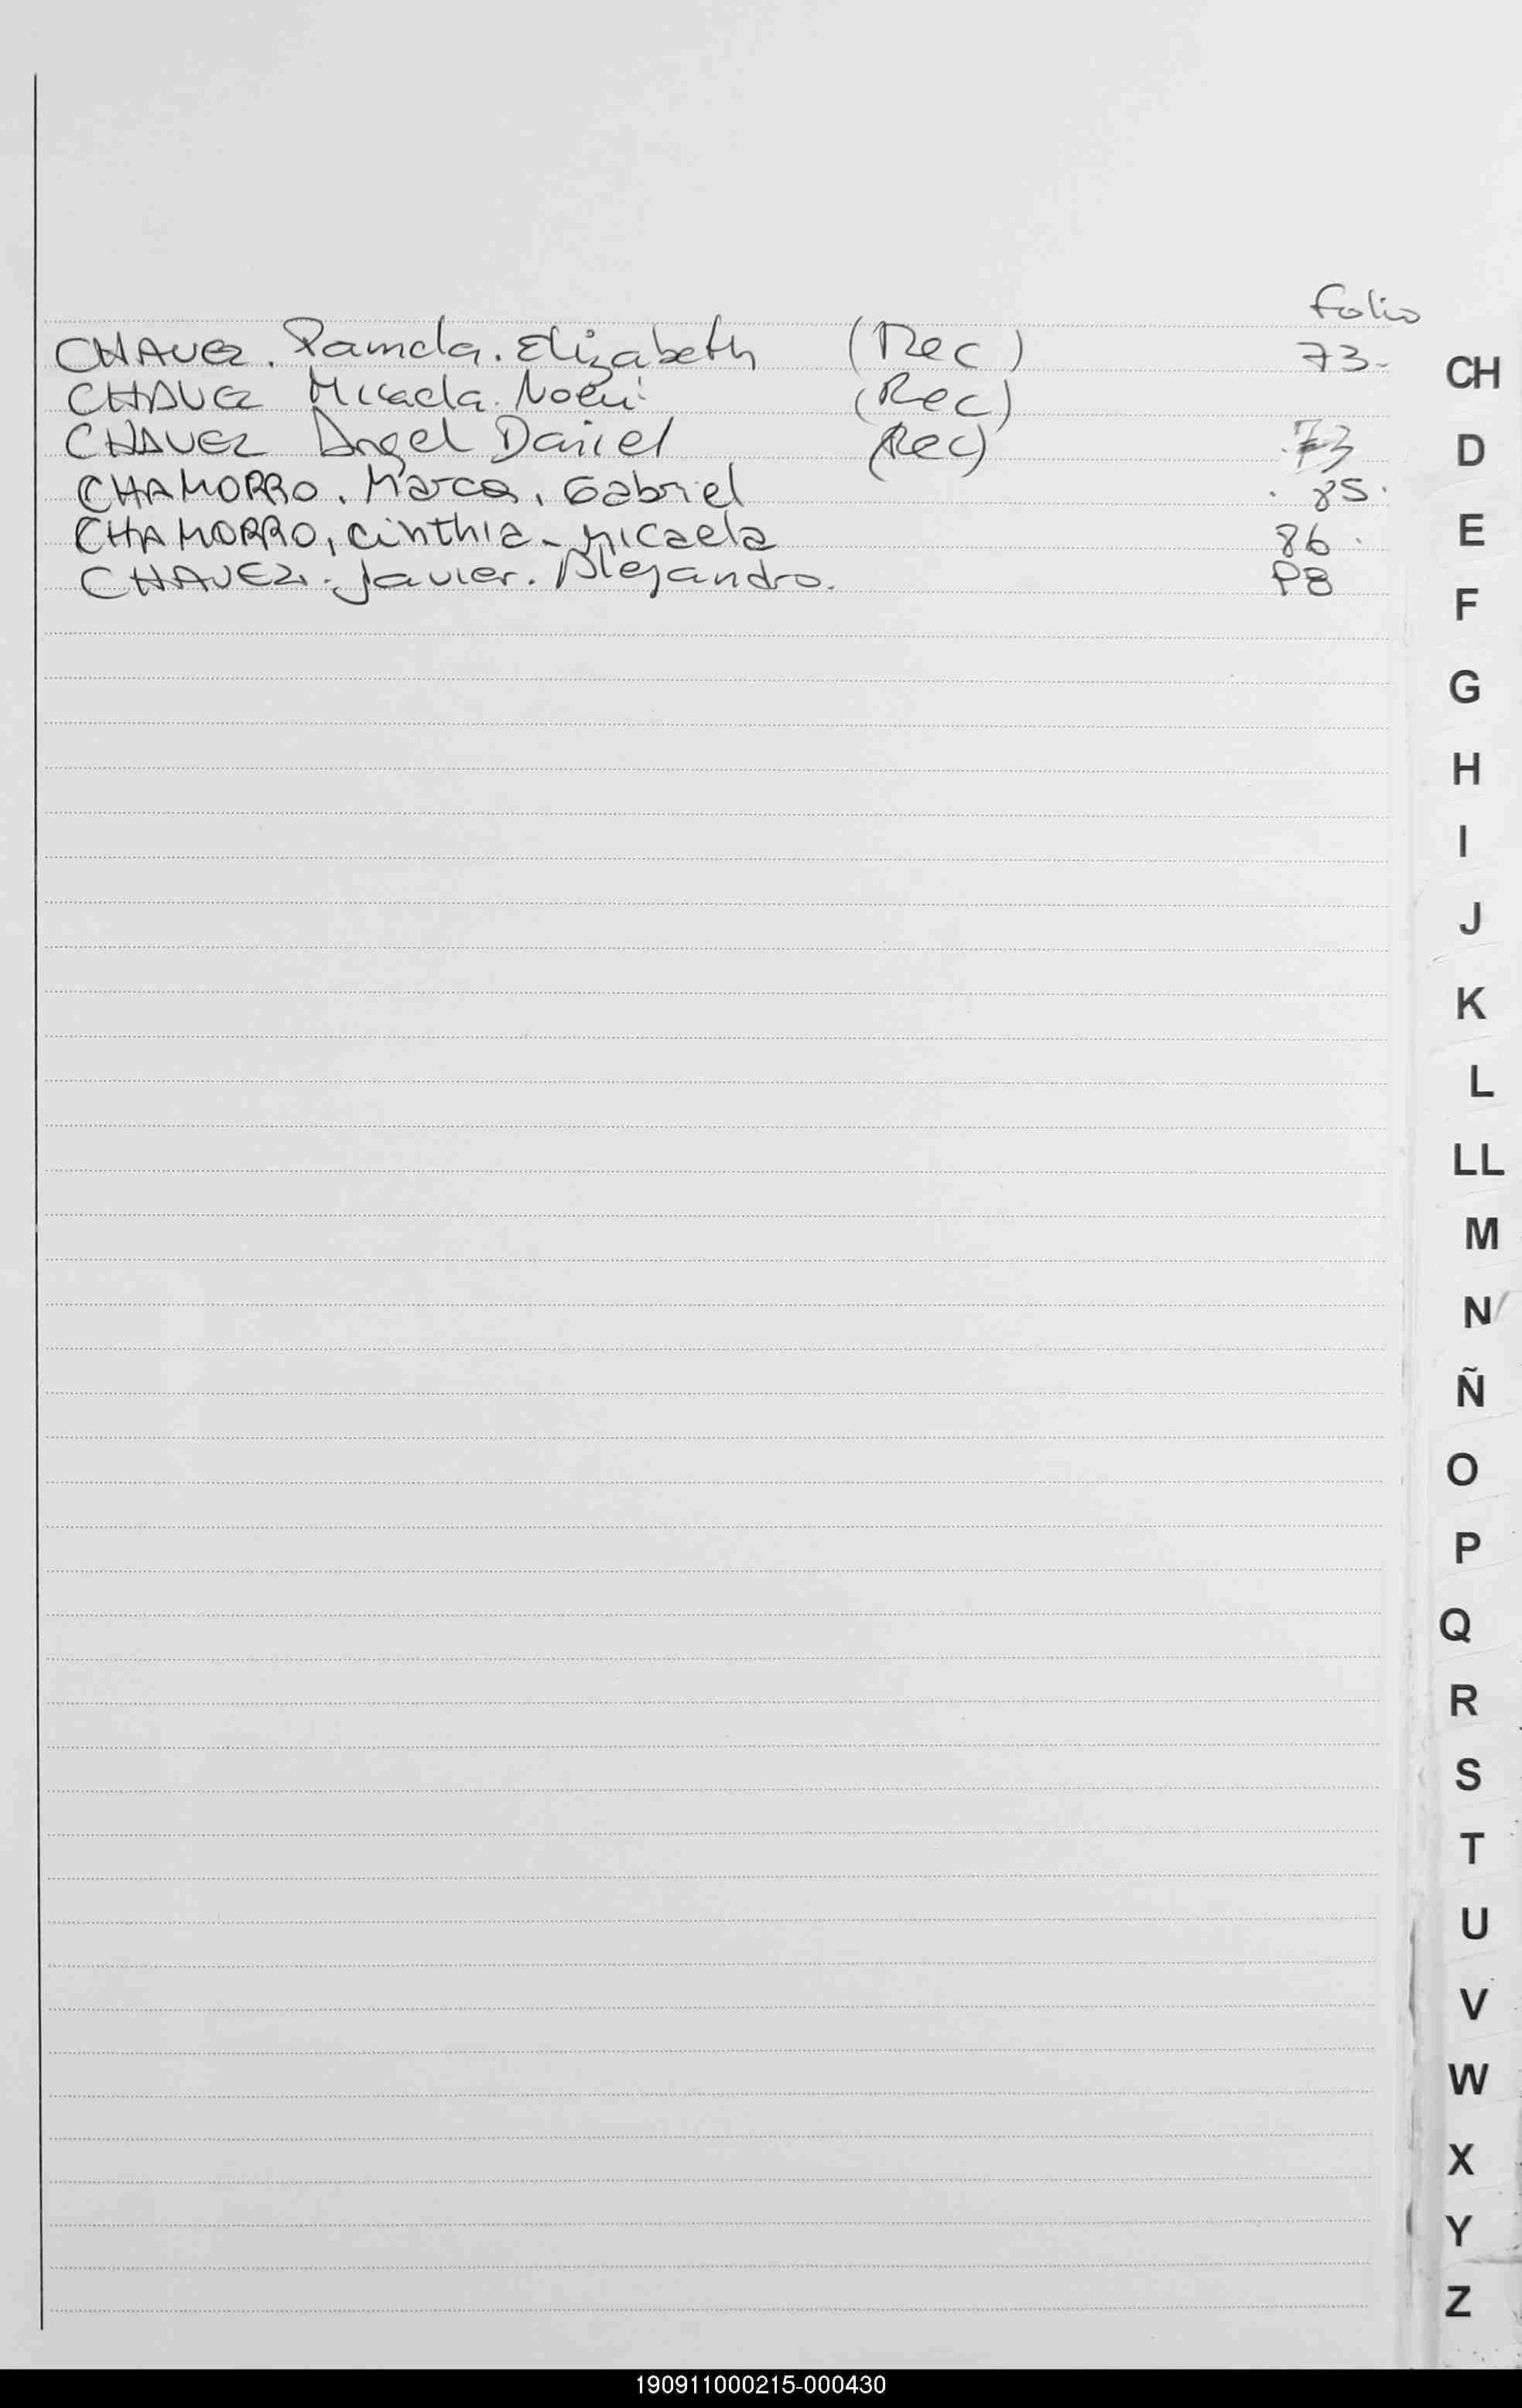 Folio
CHAVEZ. Pamela. Elizabeth (Rec) 73-
CHAVEZ Micaela. Noemi (Rec)
CHAVEZ Angel Daniel (Rec) 73
CHAMORRO. Marcos, Gabriel . 85.
CHAMORRO, Cinthia - Micaela 86.
CHAVEZ. Javier. Alejandro. P8
CH
D
E
F
G
H
I
J
K
L
LL
M
N
Ñ
O
P
Q
R
S
T
U
V
W
X
Y
Z
190911000215-000430